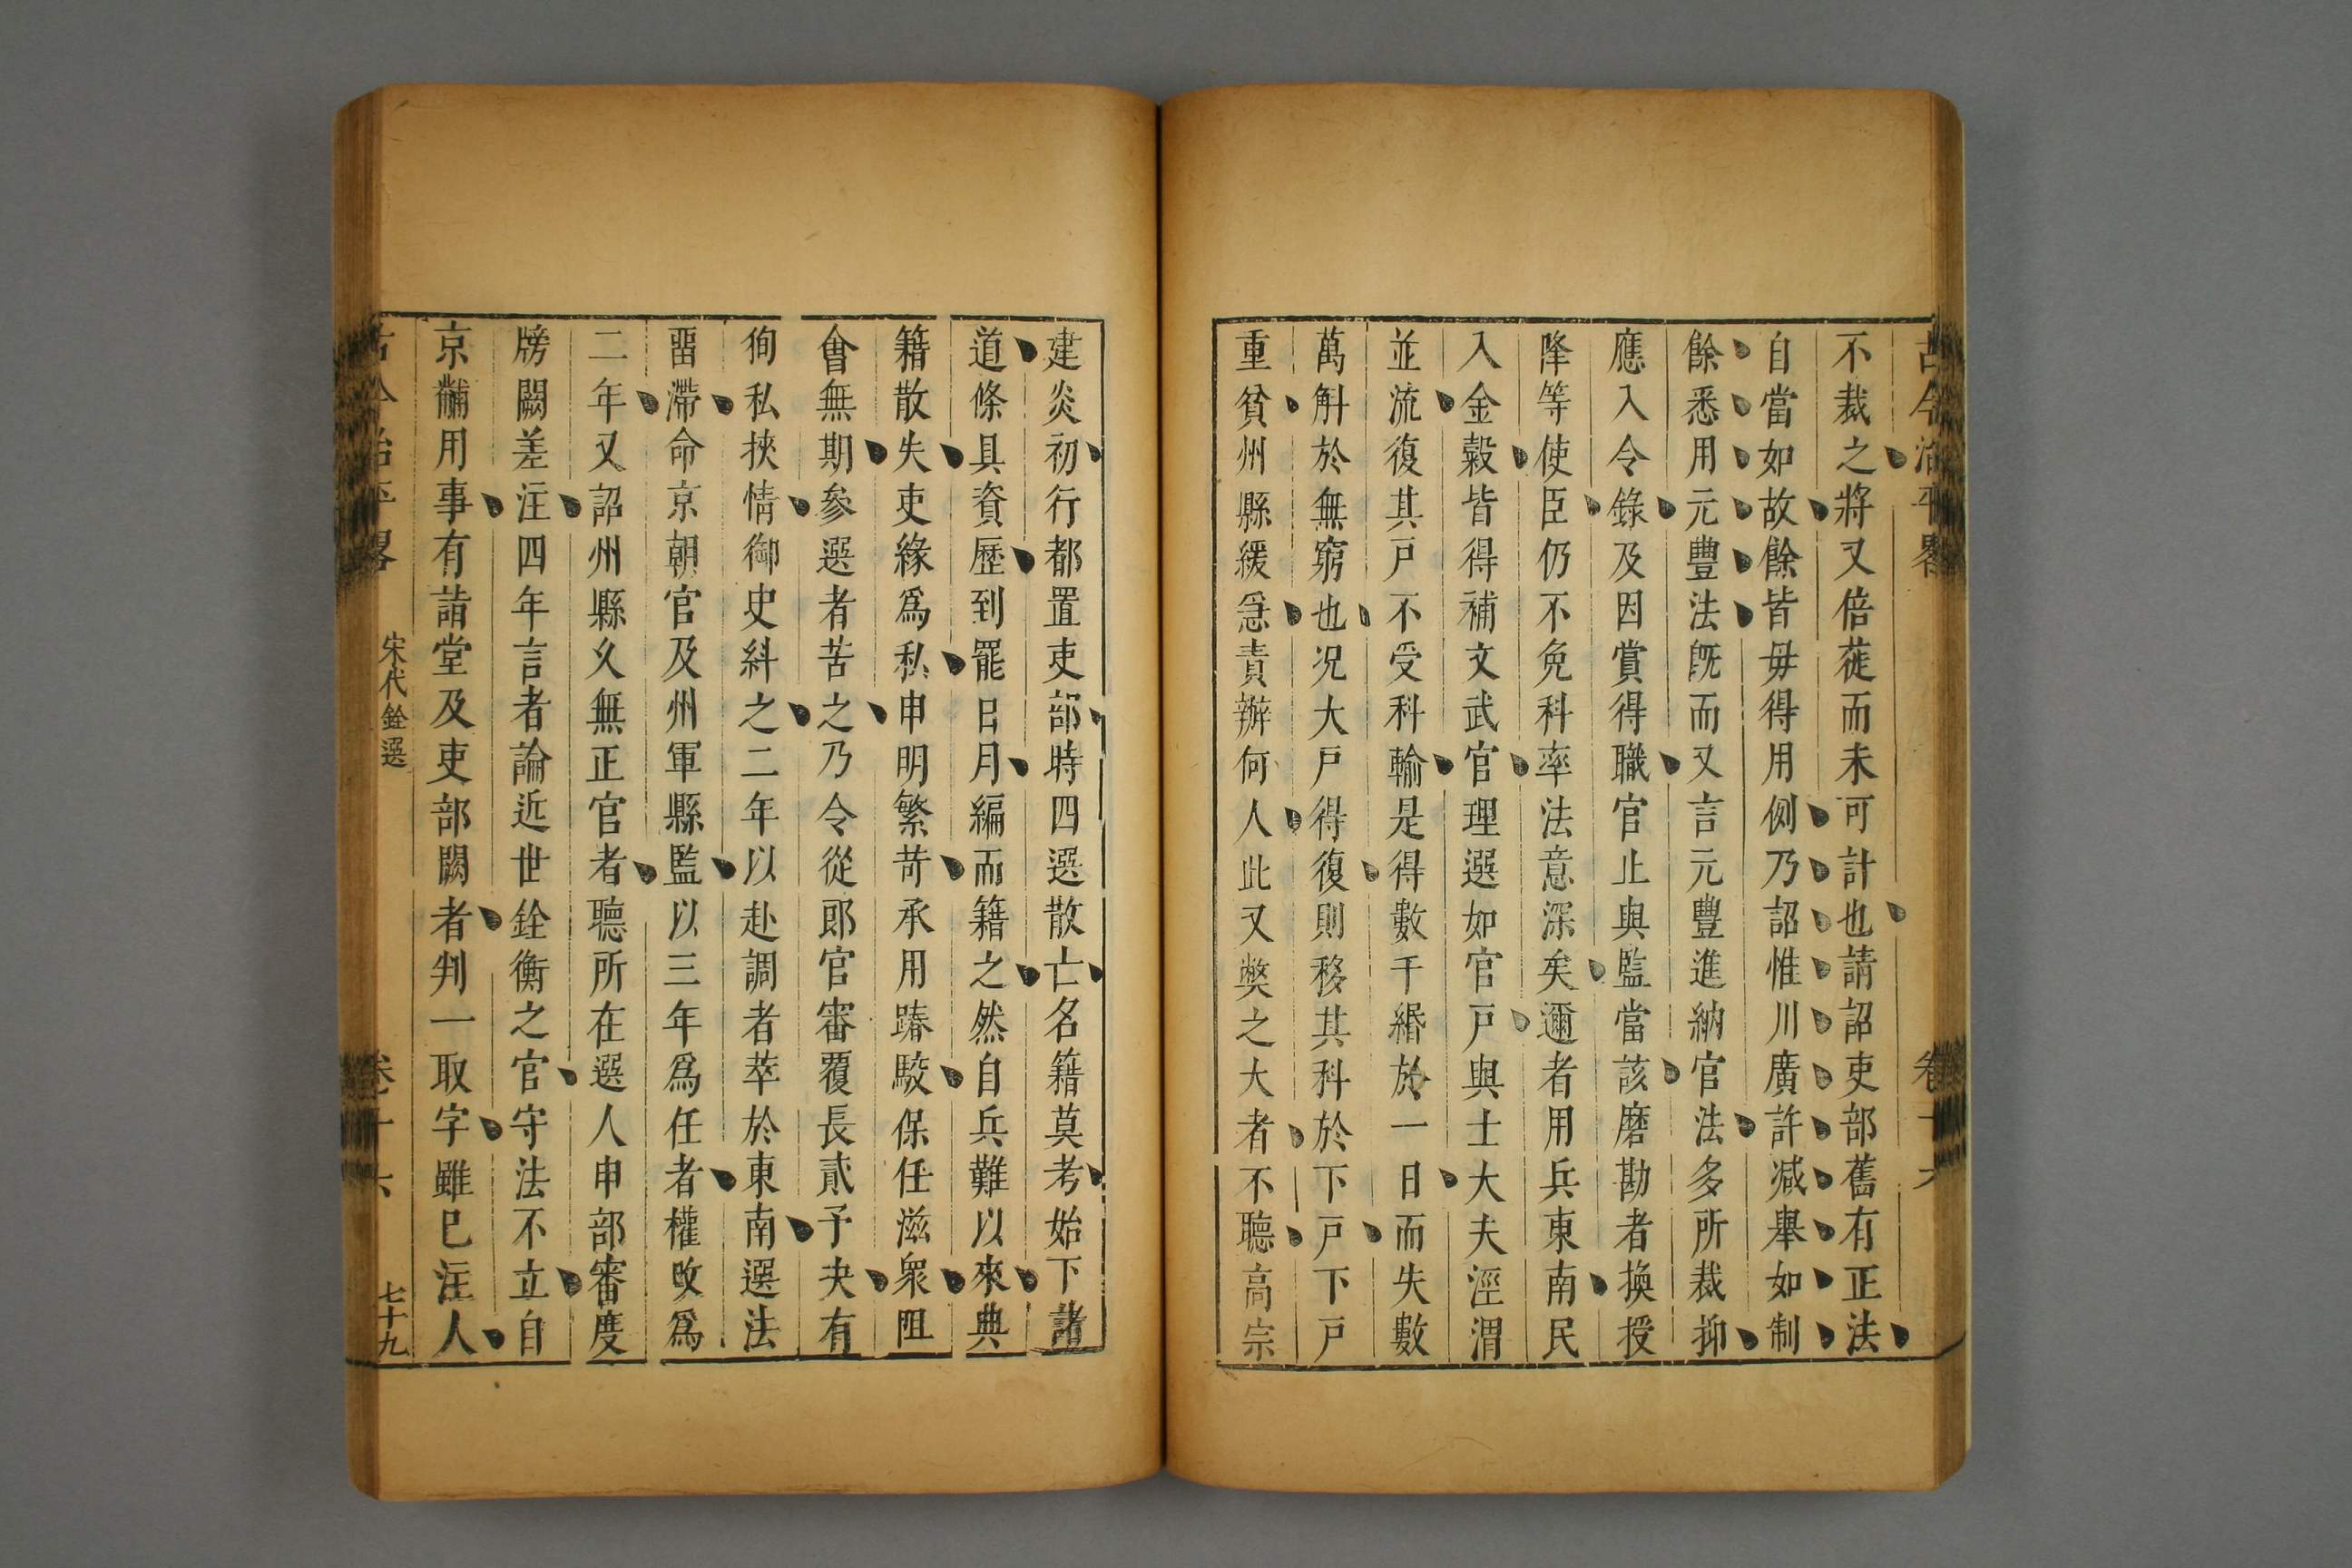 古今治平畧
卷十六
不裁之將又倍蓰而未可計也請詔吏部舊有正法
自當如故餘皆毋得用例乃詔惟川廣許减舉如制
餘悉用元豐法旣而又言元豐進納官法多所裁抑
應入令錄及因賞得職官止與監當該磨勘者換授
降等使臣仍不免科率法意深矣邇者用兵東南民
入金糓皆得補文武官理選如官戸與士大夫涇渭
並流復其戸不受科輸是得數千緡於一日而失數
萬斛於無窮也况大戸得復則移其科於下戸下戸
重貧州縣緩急責辦何人此又獘之大者不聽高宗
建炎初行都置吏部時四選散亡名籍莫考始下諸
道條具資歷到罷日月編而籍之然自兵難以來典
籍散失吏緣爲私申明繁苛承用踳駮保任滋衆阻
會無期參選者苦之乃令從郎官審覆長貳予夬有
徇私挾情御史糾之二年以赴調者萃於東南選法
畱滯命京朝官及州軍縣監以三年爲任者權改爲
二年又詔州縣久無正官者聽所在選人申部審度
牓闕差注四年言者論近世銓衡之官守法不立自
京黼用事有詣堂及吏部闕者判一取字雖已注人
古今治平畧
宋代銓選
卷十六
七十九